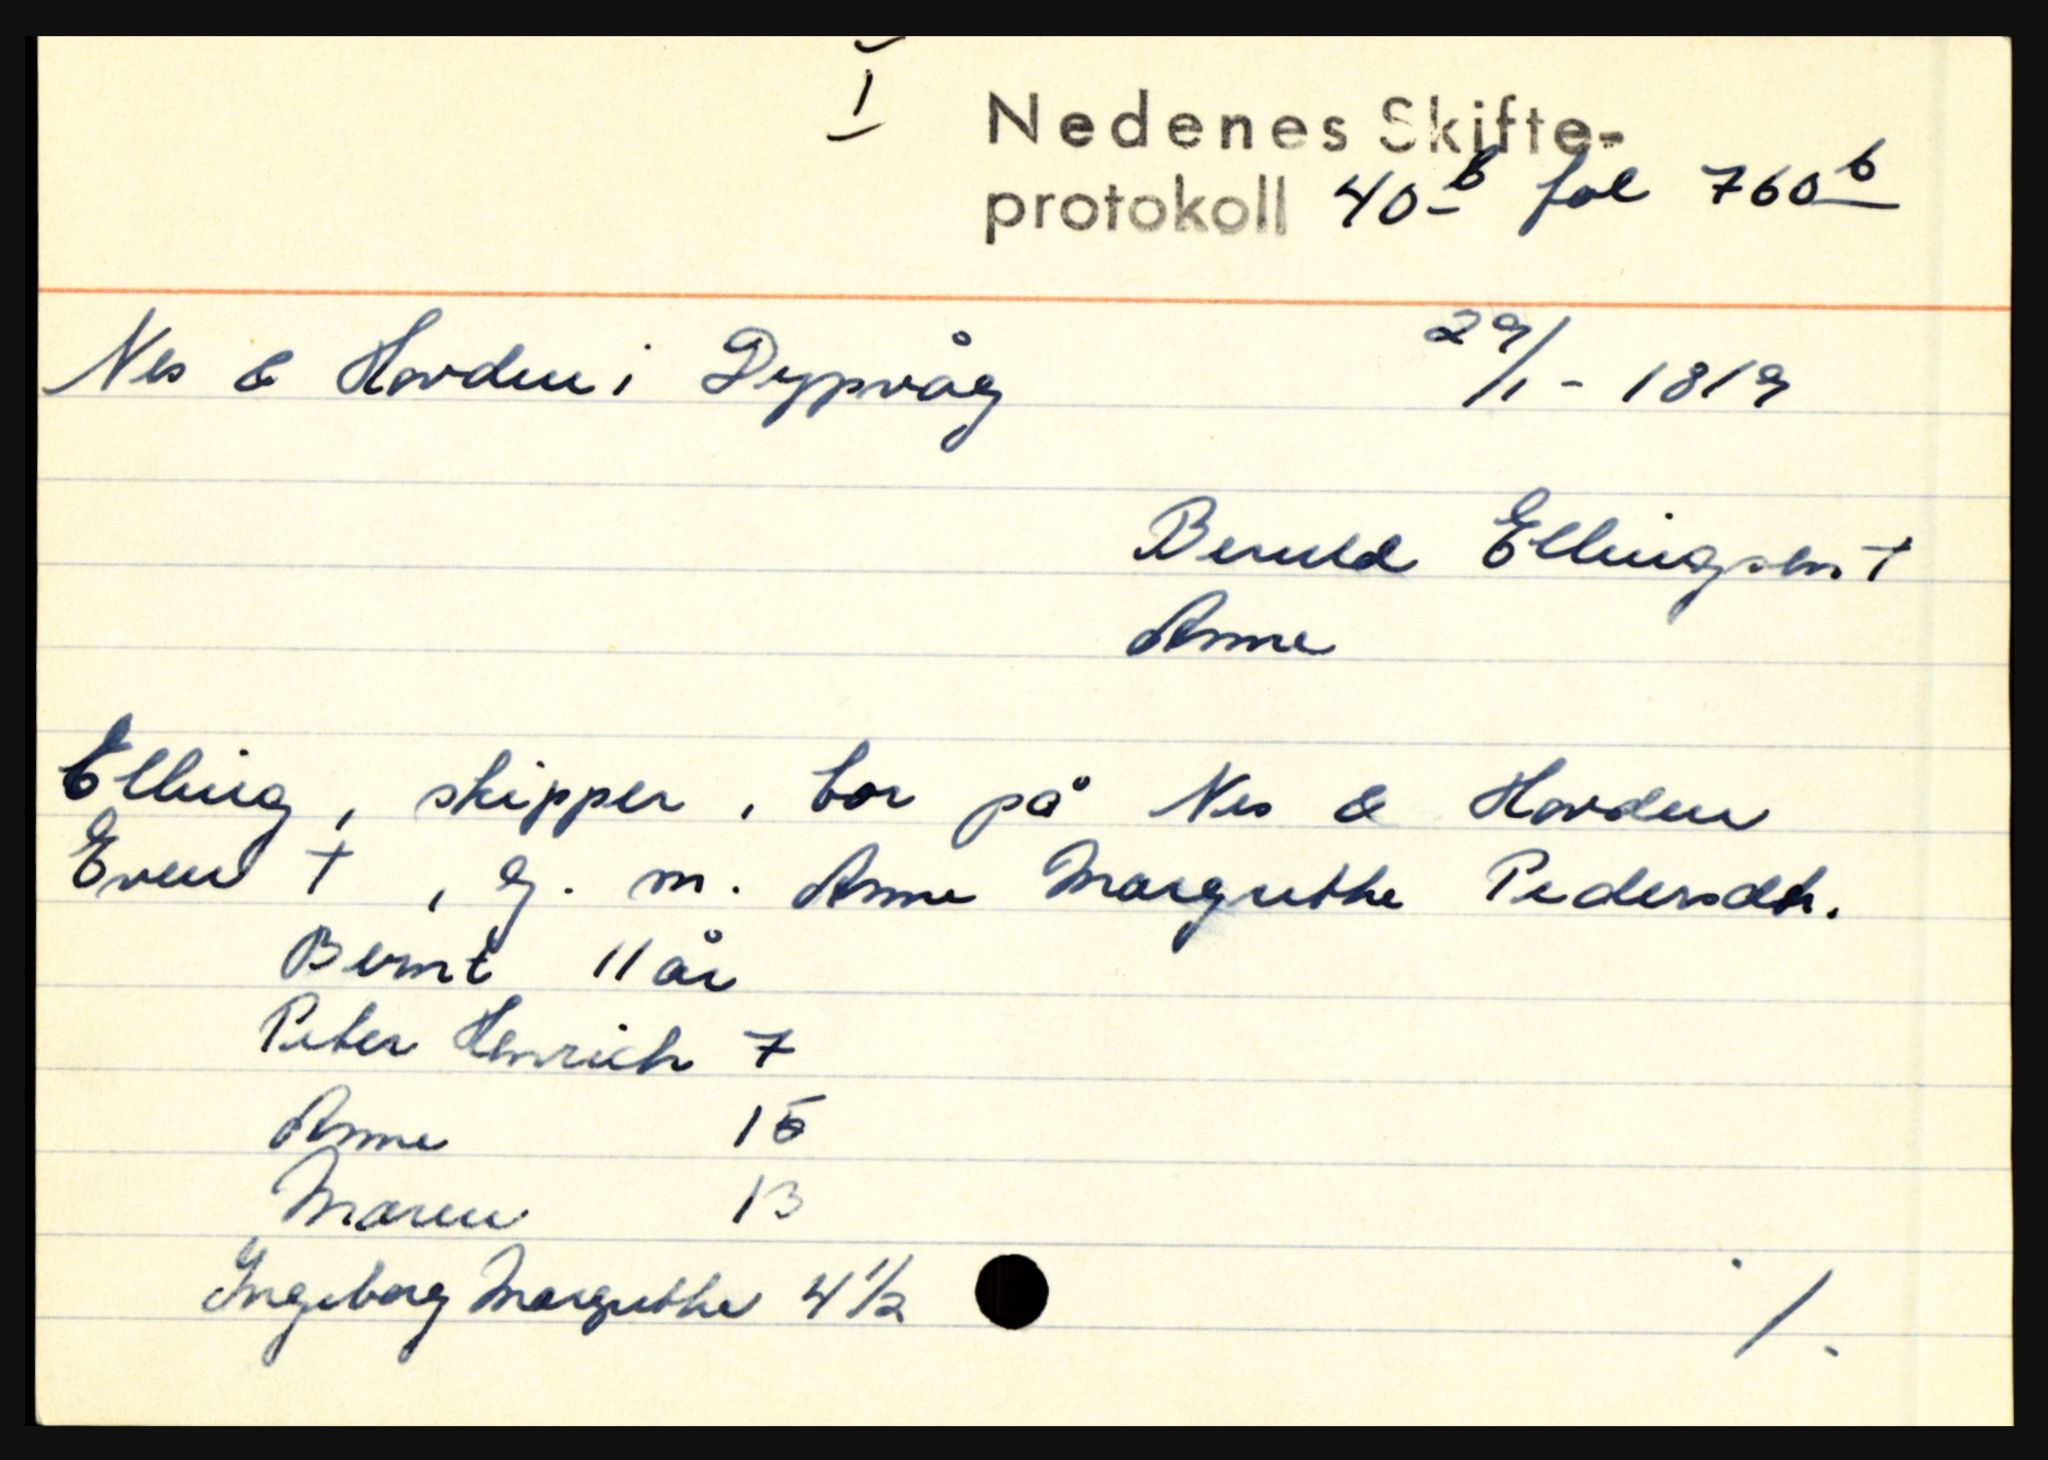 I
Nedenes Skifte-
protokoll 40 b fol 760 b
Nes & Hovden i Dypvåg 29/1 - 1819
Beruld Ellingsen †
Anne
Elling, skipper, bor på Nes & Hovden
Even †, g. m. Anne Margrethe Pedersdtr.
Bernt 11 år
Peter Henrich 7
Anne 15
Maren 13
Ingeborg Margrethe 4 1/2
./.